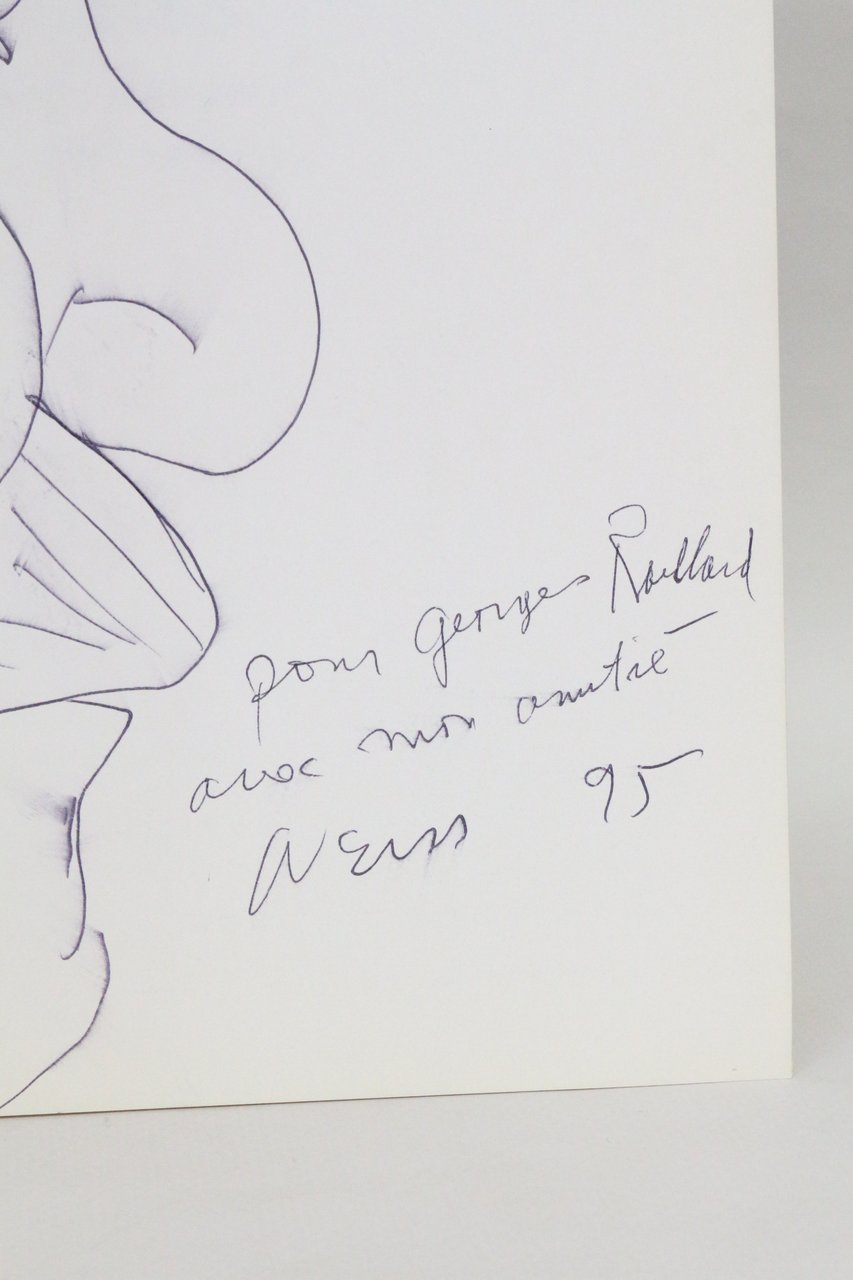 pour Georges Raillard
avec mon amitié
Weiss 95